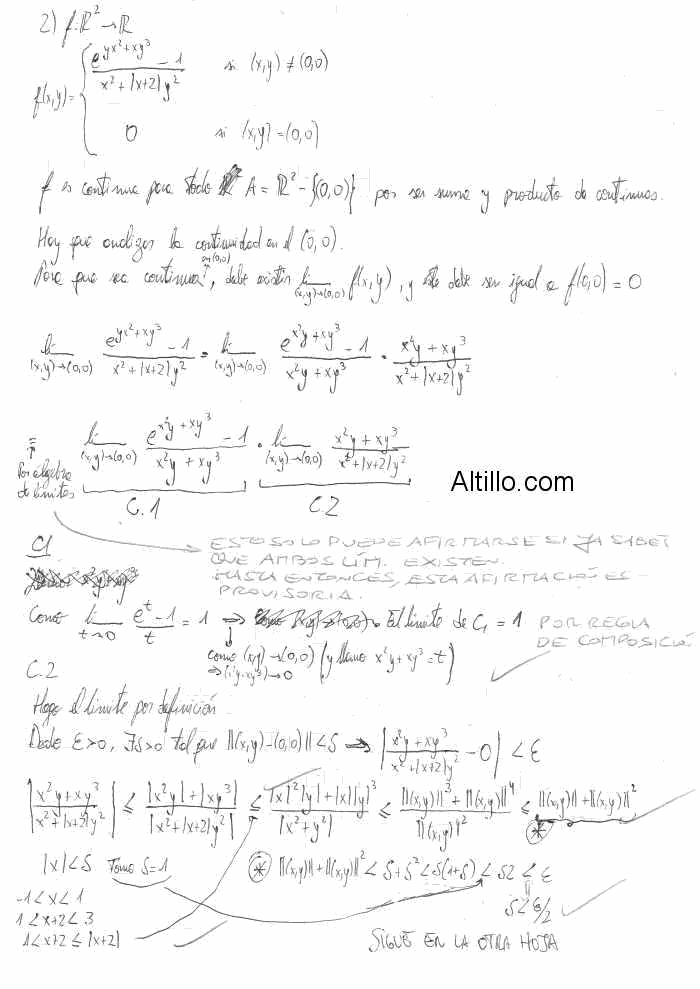 2) f: ℝ² → ℝ
f(x,y) = { (e^(yx²+xy³) - 1) / (x² + |x+2|y²) si (x,y) ≠ (0,0)
0 si (x,y) = (0,0)
f es continua para todo A = ℝ² - {(0,0)} por ser suma y producto de continuas.
Hay que analizar la continuidad en el (0,0).
Para que sea continua en (0,0), debe existir lim (x,y)→(0,0) f(x,y), y éste debe ser igual a f(0,0) = 0
lim (x,y)→(0,0) (e^(yx²+xy³) - 1) / (x² + |x+2|y²) = lim (x,y)→(0,0) (e^(x²y+xy³) - 1) / (x²y + xy³) · (x²y + xy³) / (x² + |x+2|y²)
= lim (x,y)→(0,0) (e^(x²y+xy³) - 1) / (x²y + xy³) · lim (x,y)→(0,0) (x²y + xy³) / (x² + |x+2|y²)
Por álgebra de límites
C.1 C.2
Altillo.com
ESTO SOLO PUEDE AFIRMARSE SI YA SABES
QUE AMBOS LÍM. EXISTEN.
HASTA ENTONCES, ESTA AFIRMACIÓN ES
PROVISORIA.
C1
Como lim t→0 (e^t - 1) / t = 1 ⇒ El límite de C₁ = 1 POR REGLA
DE COMPOSICIÓN
como (x,y) → (0,0) (y llamo x²y + xy³ = t)
⇒ (x²y+xy³) → 0
C.2
Hago el límite por definición
Dado ε > 0, ∃δ > 0 tal que ||(x,y) - (0,0)|| < δ ⇒ |(x²y + xy³) / (x² + |x+2|y²) - 0| < ε
|(x²y + xy³) / (x² + |x+2|y²)| ≤ (|x²y| + |xy³|) / |x² + |x+2|y²| ≤ (|x|²|y| + |x||y|³) / |x² + y²| ≤ (||(x,y)||³ + ||(x,y)||⁴) / ||(x,y)||² ≤ ||(x,y)|| + ||(x,y)||² *
|x| < δ Tomo δ = 1 * ||(x,y)|| + ||(x,y)||² < δ + δ² < δ(1+δ) < δ2 < ε
-1 < x < 1
δ < ε/2
1 < x+2 < 3
1 < x+2 ≤ |x+2|
SIGUE EN LA OTRA HOJA